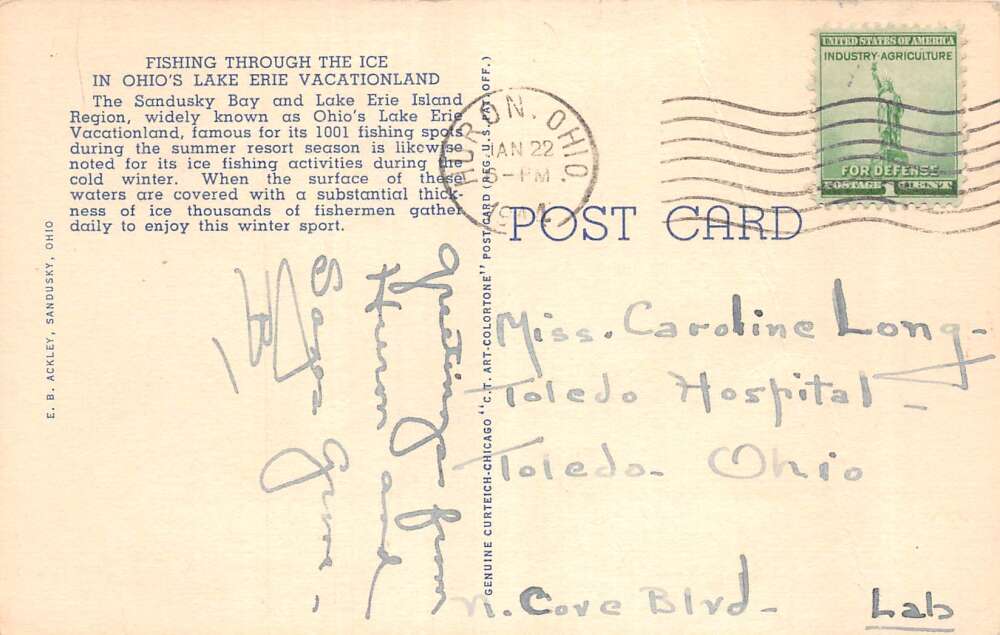 FISHING THROUGH THE ICE
IN OHIO'S LAKE ERIE VACATIONLAND
The Sandusky Bay and Lake Erie Island
Region, widely known as Ohio's Lake Erie
Vacationland, famous for its 1001 fishing spots
during the summer resort season is likewise
noted for its ice fishing activities during the
cold winter. When the surface of these
waters are covered with a substantial thick-
ness of ice thousands of fishermen gather
daily to enjoy this winter sport.
E. B. ACKLEY, SANDUSKY, OHIO
Greetings from
Huron and
GENUINE CURTEICH-CHICAGO "C. T. ART-COLORTONE" POST CARD (REG. U. S. PAT. OFF.)
HURON, OHIO
JAN 22
UNITED STATES OF AMERICA
INDUSTRY-AGRICULTURE
FOR DEFENSE
POSTAGE 1 CENT
POST CARD
Miss. Caroline Long-
Toledo Hospital-
Toledo- Ohio
N. Cove Blvd- Lab